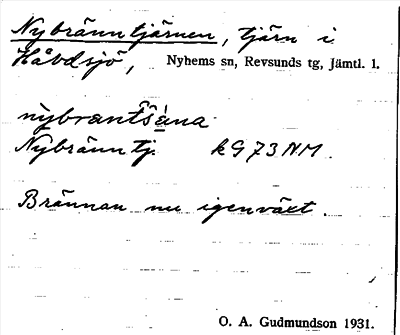 Nybränntjärnen, tjärn i
Håvdsjö, Nyhems sn, Revsunds tg, Jämtl. l.
Nybränntj. kG73NM.
Brännan nu igenväxt.
O. A. Gudmundson 1931.